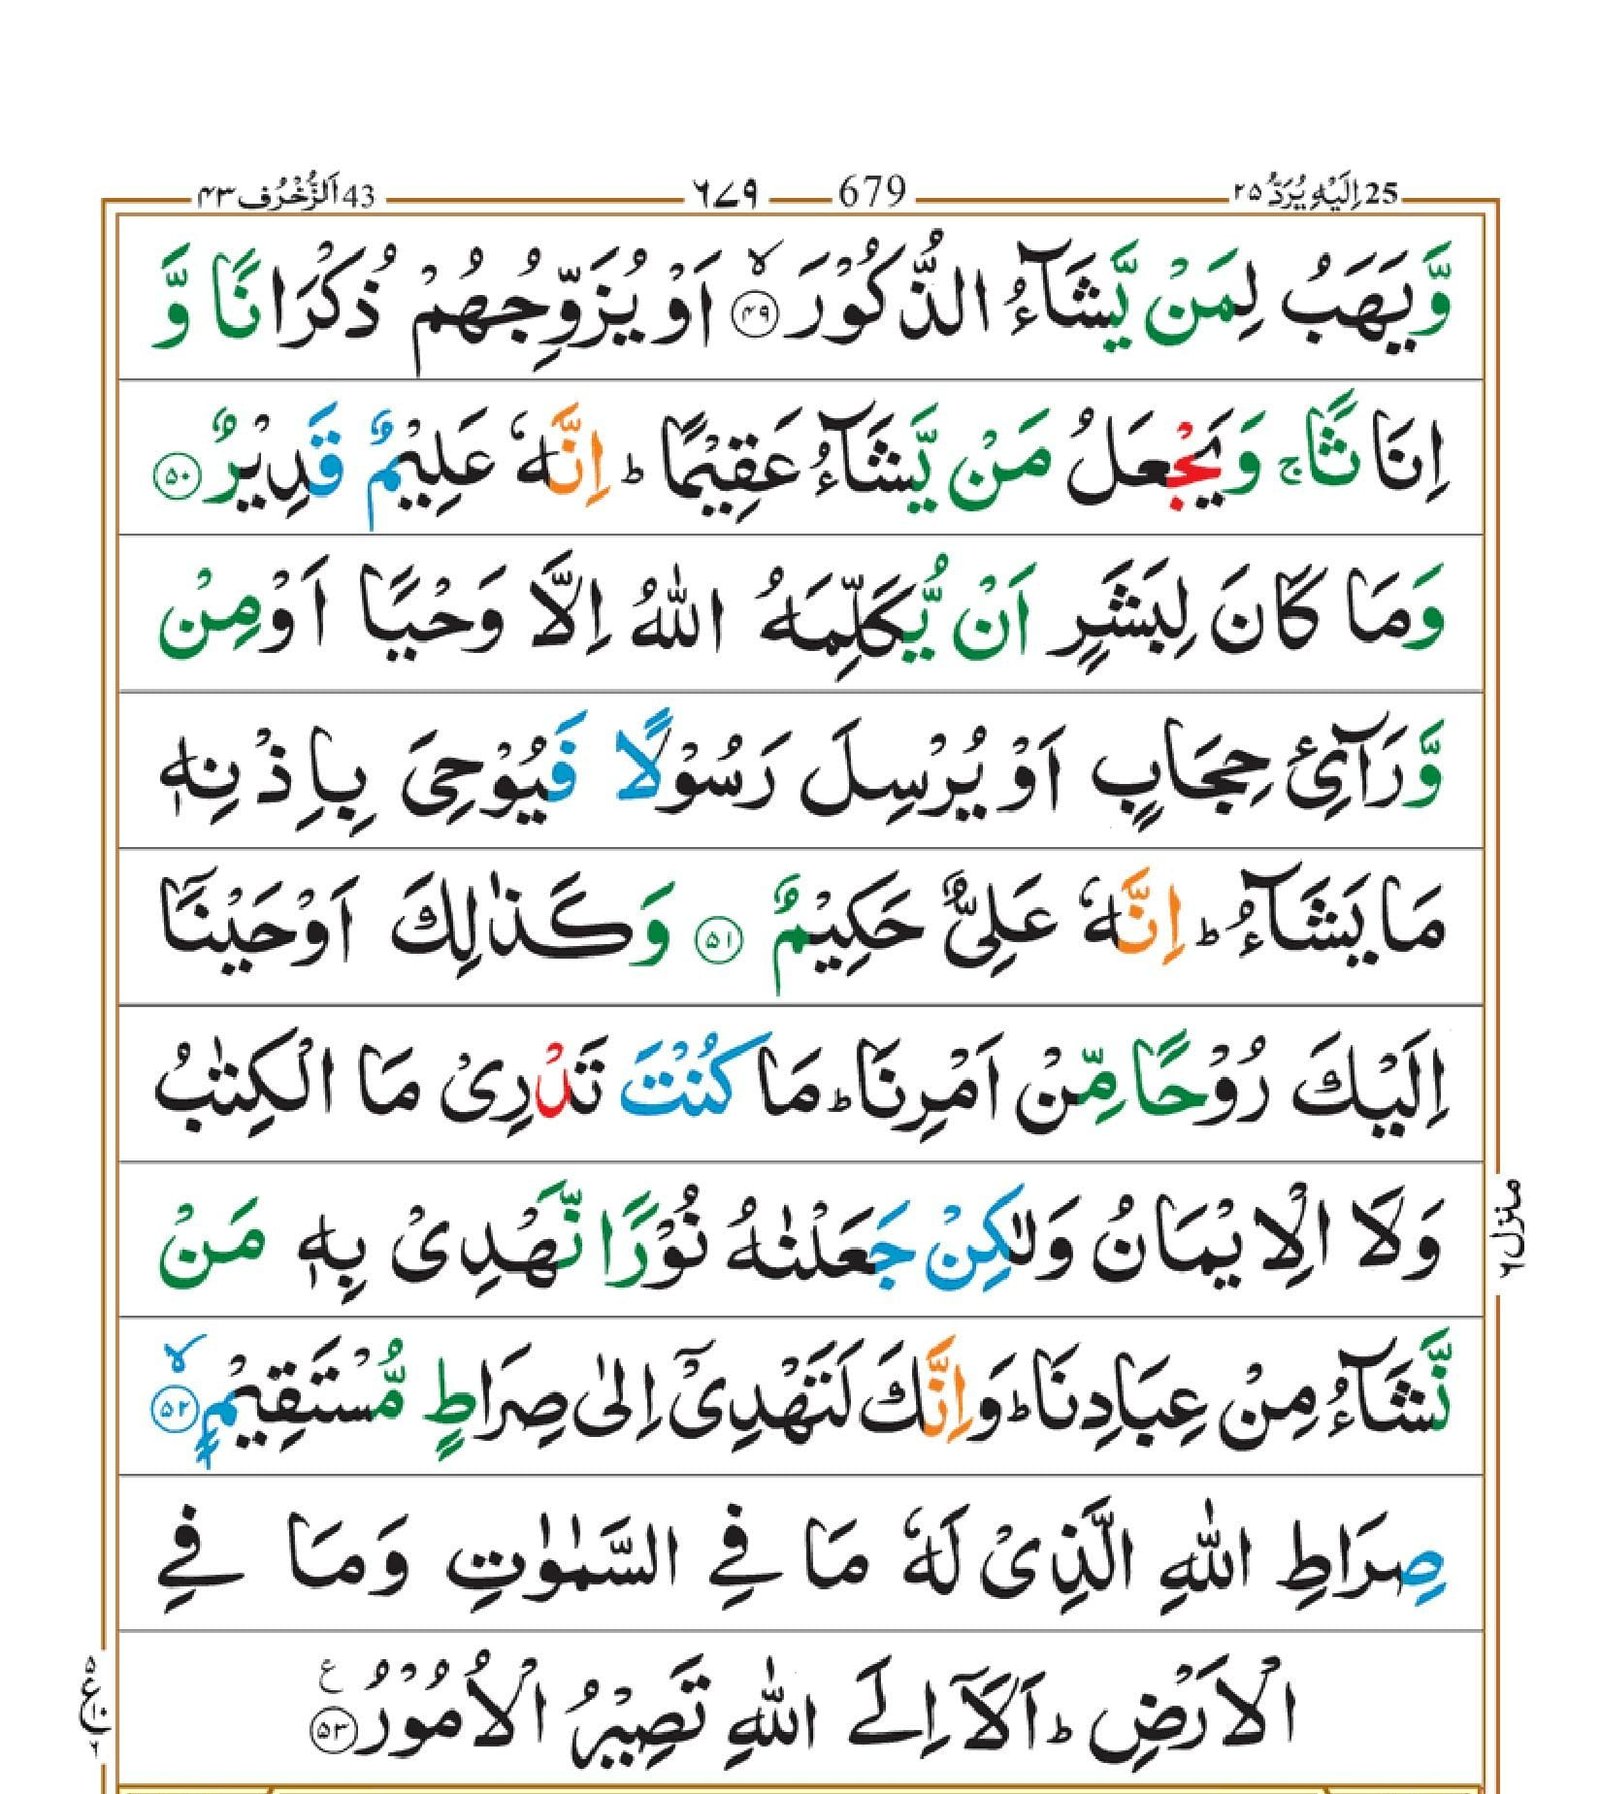 25 اِلَيْهِ يُرَدُّ ٢٥ 679 ٦٧٩ 43 اَلزُّخْرُف ٤٣
وَّيَهَبُ لِمَنْ يَّشَآءُ الذُّكُوْرَ ۙ﴿۴۹﴾ اَوْ يُزَوِّجُهُمْ ذُكْرَانًا وَّ
اِنَاثًا ۚ وَيَجْعَلُ مَنْ يَّشَآءُ عَقِيْمًا ؕ اِنَّهٗ عَلِيْمٌ قَدِيْرٌ ﴿۵۰﴾
وَمَا كَانَ لِبَشَرٍ اَنْ يُّكَلِّمَهُ اللّٰهُ اِلَّا وَحْيًا اَوْ مِنْ
وَّرَآئِ حِجَابٍ اَوْ يُرْسِلَ رَسُوْلًا فَيُوْحِىَ بِاِذْنِهٖ
مَا يَشَآءُ ؕ اِنَّهٗ عَلِىٌّ حَكِيْمٌ ﴿۵۱﴾ وَكَذٰلِكَ اَوْحَيْنَاۤ
اِلَيْكَ رُوْحًا مِّنْ اَمْرِنَا ؕ مَا كُنْتَ تَدْرِىْ مَا الْكِتٰبُ
وَلَا الْاِيْمَانُ وَلٰكِنْ جَعَلْنٰهُ نُوْرًا نَّهْدِىْ بِهٖ مَنْ
نَّشَآءُ مِنْ عِبَادِنَا ؕ وَاِنَّكَ لَتَهْدِىْۤ اِلٰى صِرَاطٍ مُّسْتَقِيْمٍ ۙ﴿۵۲﴾
صِرَاطِ اللّٰهِ الَّذِىْ لَهٗ مَا فِى السَّمٰوٰتِ وَمَا فِى
الْاَرْضِ ؕ اَلَاۤ اِلَى اللّٰهِ تَصِيْرُ الْاُمُوْرُ ﴿۵۳﴾ ع
منزل ٦